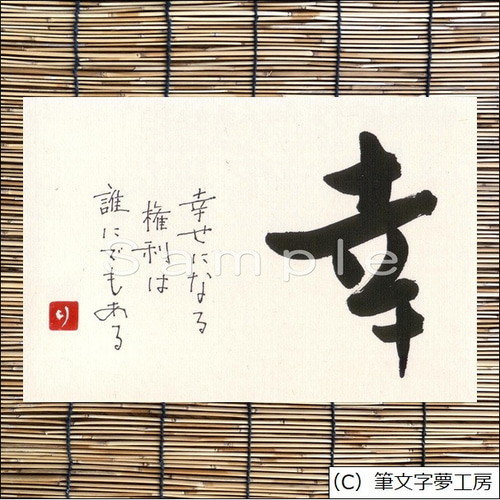 幸
幸せになる
権利は
誰にでもある
Sample
り
(C) 筆文字夢工房